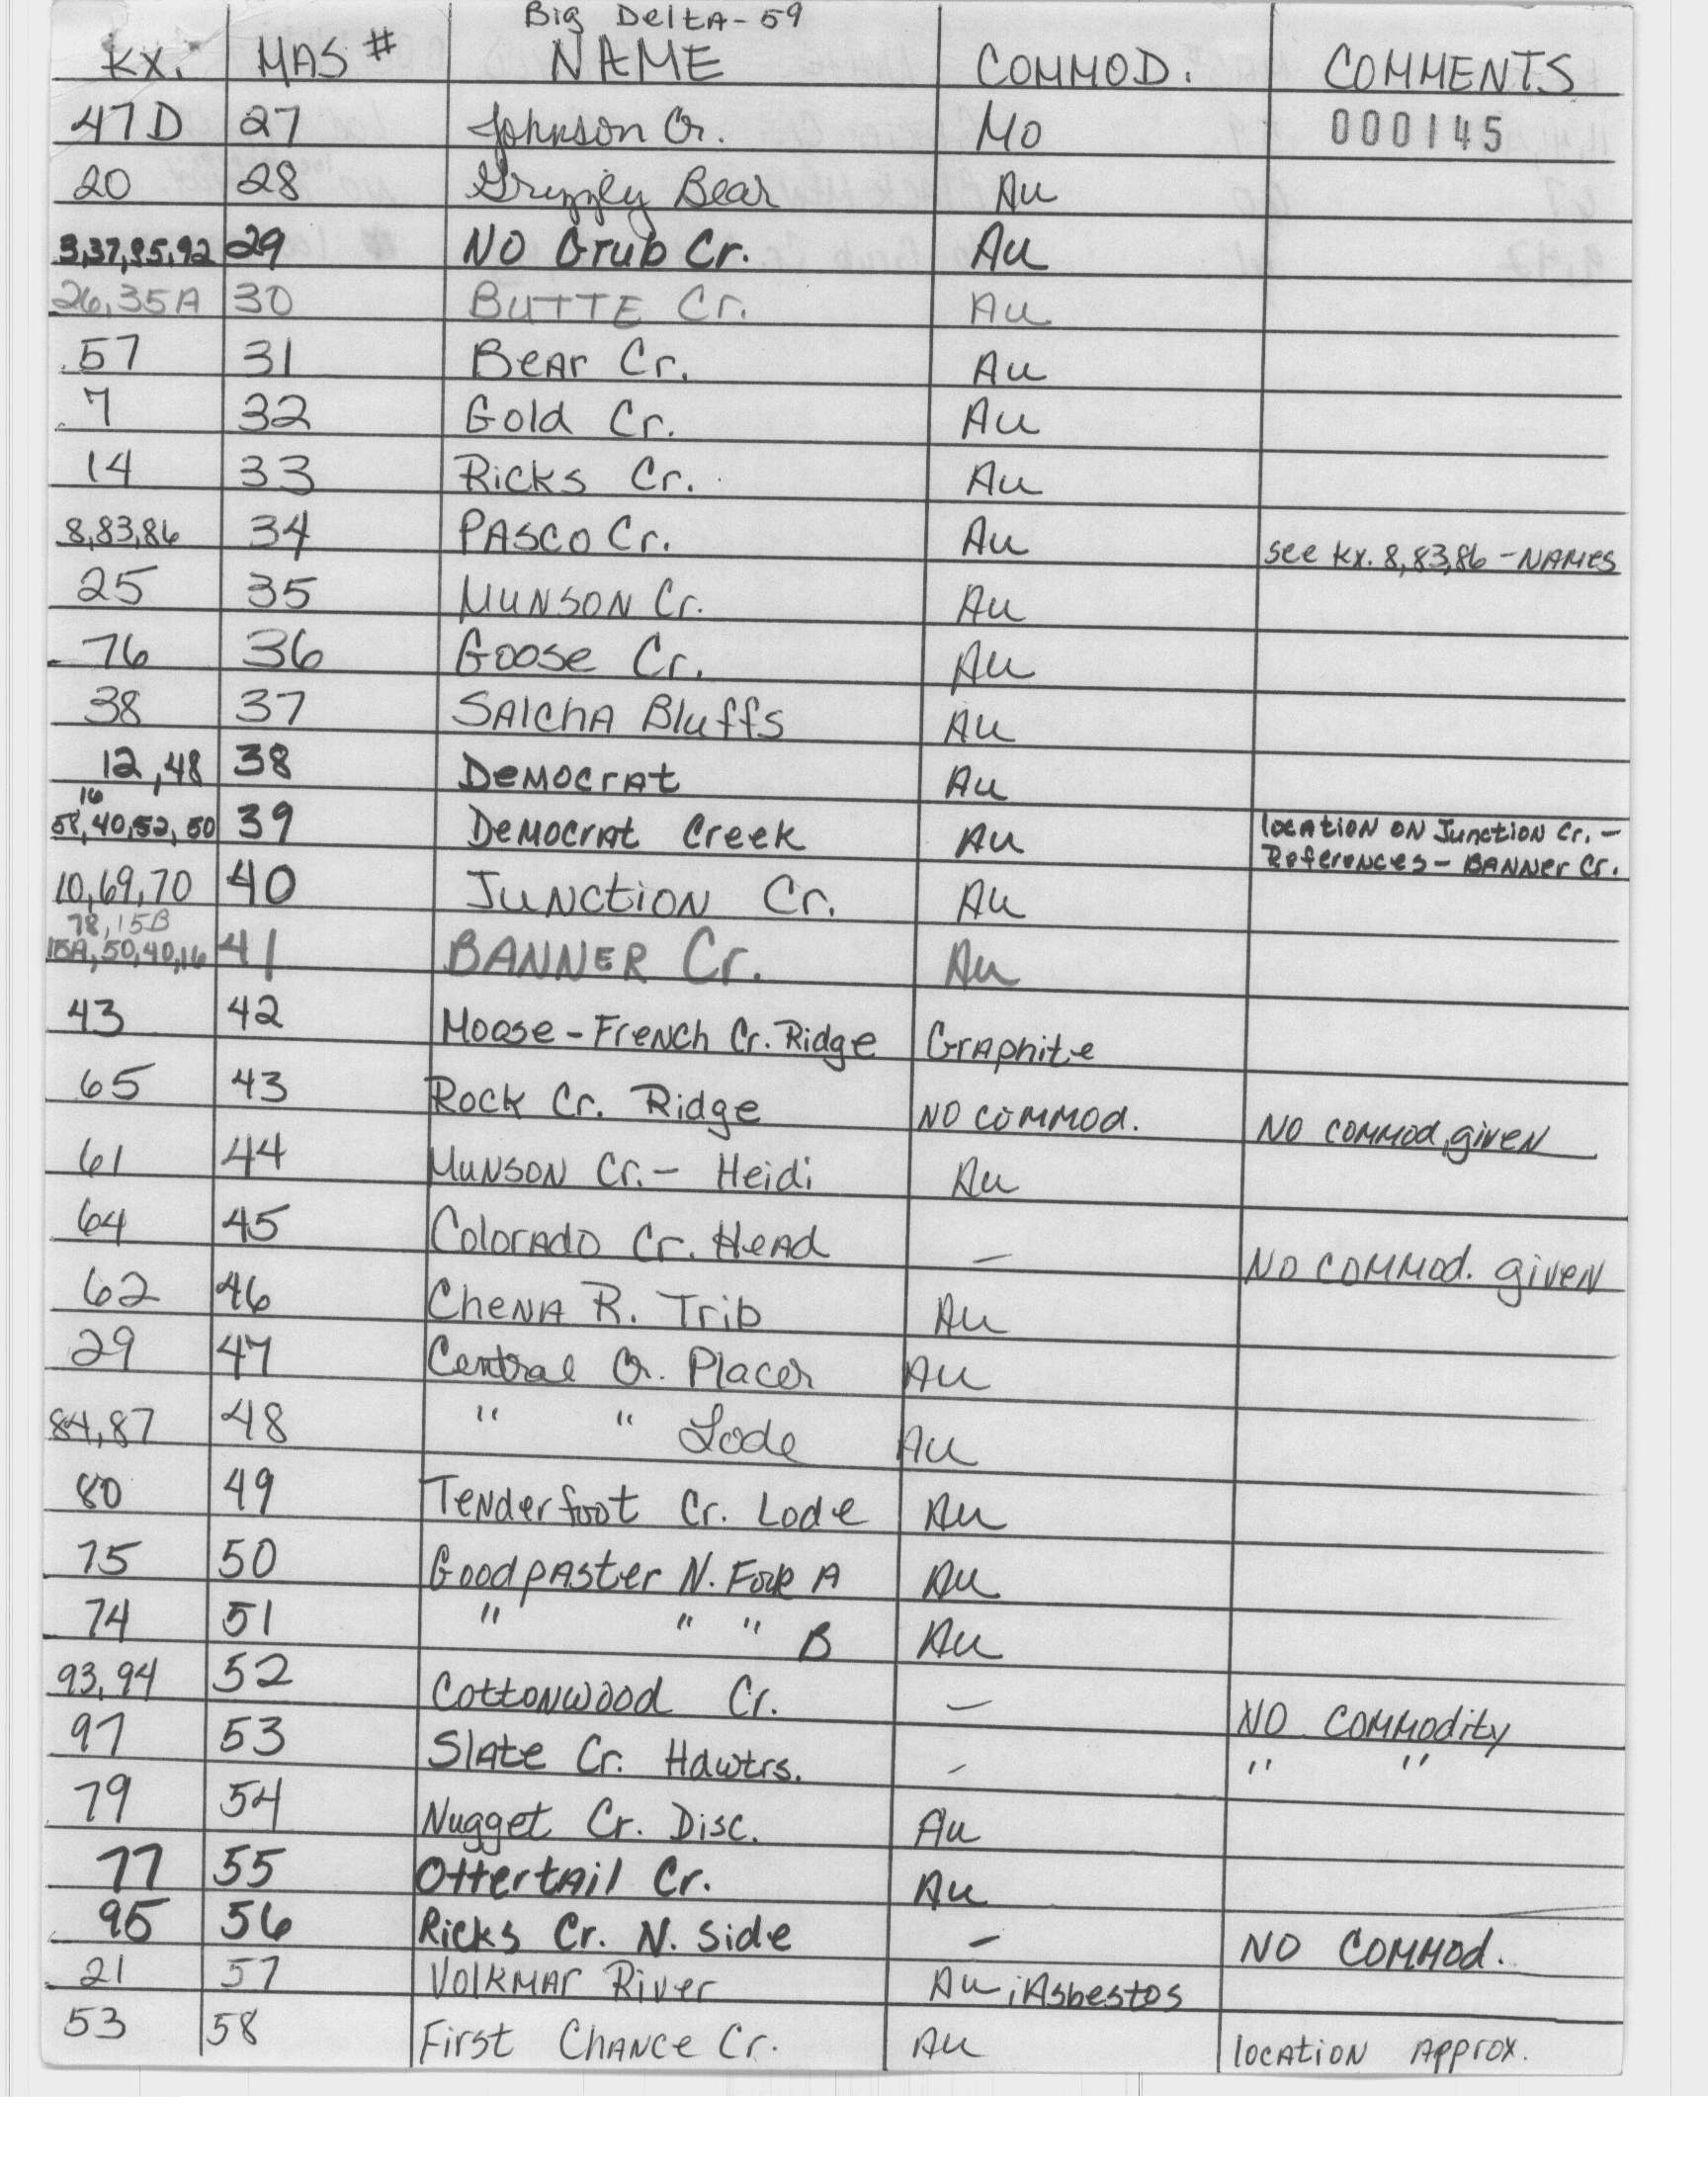 Big Delta - 59
KX. MAS # NAME COMMOD. COMMENTS
47D 27 Johnson Cr. Mo 000145
20 28 Grizzly Bear Au
3,37,85,92 29 No Grub Cr. Au
26,35A 30 Butte Cr. Au
57 31 Bear Cr. Au
7 32 Gold Cr. Au
14 33 Ricks Cr. Au
8,83,86 34 Pasco Cr. Au see KX. 8,83,86 - Names
25 35 Munson Cr. Au
76 36 Goose Cr. Au
38 37 Salcha Bluffs Au
12,48 38 Democrat Au
16
58,40,52,50 39 Democrat Creek Au location on Junction Cr. -
References - Banner Cr.
10,69,70 40 Junction Cr. Au
78,15B
15A,50,40,16 41 BANNER Cr. Au
43 42 Moose - French Cr. Ridge Graphite
65 43 Rock Cr. Ridge No commod. No commod, given
61 44 Munson Cr. - Heidi Au
64 45 Colorado Cr. Head — No commod. given
62 46 Chena R. Trib Au
29 47 Central Cr. Placer Au
84,87 48 " " Lode Au
80 49 Tenderfoot Cr. Lode Au
75 50 Goodpaster N. Fork A Au
74 51 " " " B Au
93,94 52 Cottonwood Cr. — No Commodity
97 53 Slate Cr. Hdwtrs. — " "
79 54 Nugget Cr. Disc. Au
77 55 Ottertail Cr. Au
95 56 Ricks Cr. N. Side — No Commod.
21 57 Volkmar River Au ; Asbestos
53 58 First Chance Cr. Au location Approx.